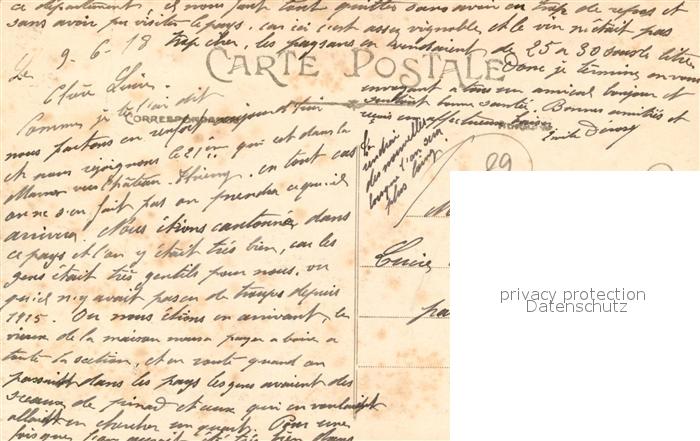 ce département, il nous faut quitter sans avoir eu trop de repos et
sans avoir pu visiter le pays, car ici c'est assez vignoble et le vin n'était pas
trop cher, les paysans en vendaient de 25 à 30 sous le litre
Donc je termine en vous
envoyant à tous un amical bonjour et
surtout bonne santé. Bonnes amitiés et
Émile
CARTE POSTALE
CORRESPONDANCE
Le 9-6-18
Chère Lucie.
Comme je te l'ai dit
nous partons en renfort aujourd'hui
et nous rejoignons le 21 qui est dans la
Marne vers Château-Thierry. en tout cas
on ne s'en fait pas on prendra ce qu'il
arrivera. Nous étions cantonnés dans
ce pays et l'on y était très bien, car les
gens était très gentils pour nous, vu
qu'il n'y avait pas eu de troupes depuis
1915. Ou nous étions en arrivant, le
vieux de la maison nous a payer à boire à
toute la section, et en route quand on
passait dans les pays les gens avaient des
seaux de pinard et ceux qui en voulaient
allaient en chercher un quart. Pour une
fois que l'on aurait été très bien dans
Je
des nouvelles
lorsque l'on sera
plus loin
29
Lucie
privacy protection
Datenschutz